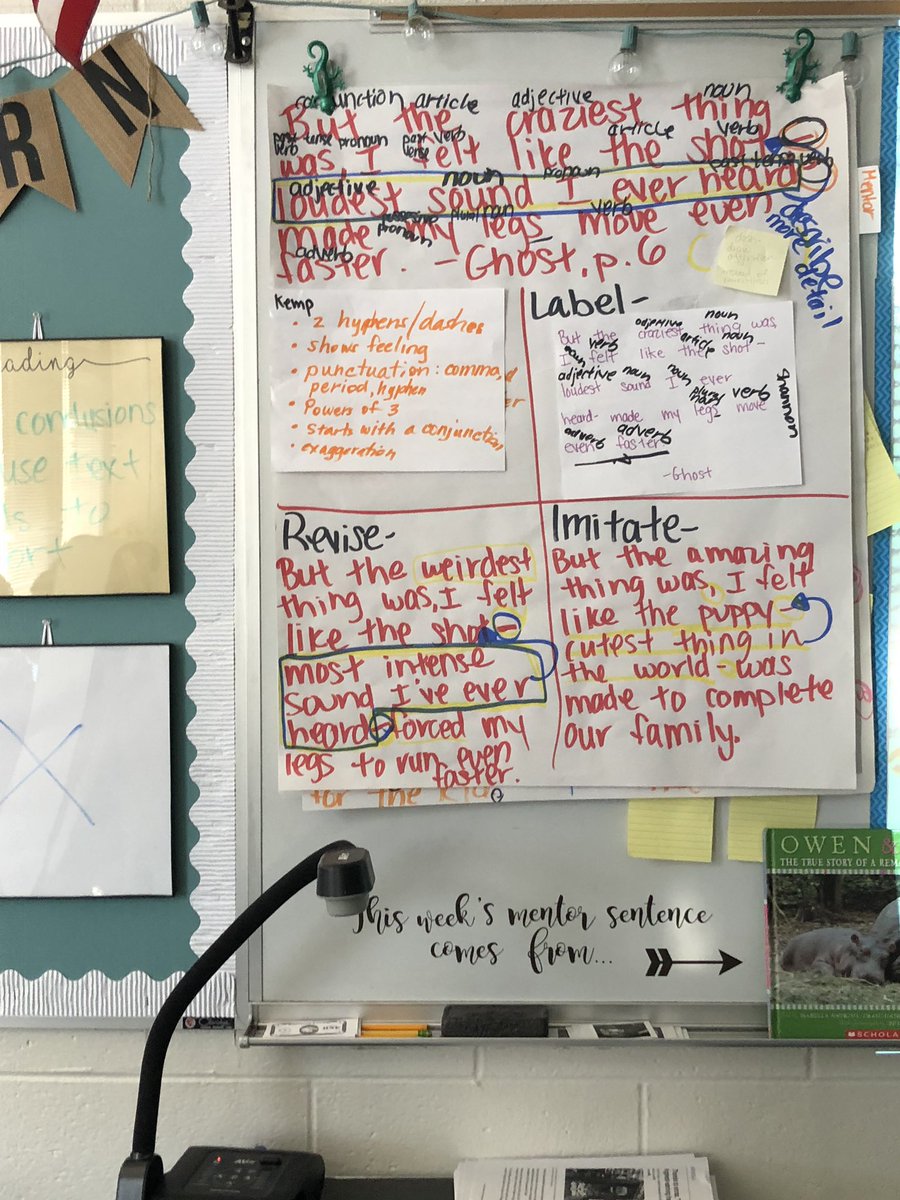 R N
conjunction article adjective noun
But the craziest thing
past tense verb pronoun past tense verb article verb
was, I felt like the shot -
adjective noun pronoun past tense verb
loudest sound I ever heard
possessive pronoun plural noun verb
made my legs move even
adverb
faster. -Ghost, p.6
describe
more detail
Mentor
Kemp
• 2 hyphens/dashes
• shows feeling
• punctuation: comma,
period, hyphen
• Powers of 3
• starts with a conjunction
• exaggeration
Label-
adjective noun
But the craziest thing was,
noun verb article noun
I felt like the shot -
adjective noun noun
loudest sound I ever
plural noun verb
heard- made my legs move
adverb adverb
even faster
-Ghost
Shannon
Revise-
But the weirdest
thing was, I felt
like the shot -
most intense
sound I've ever
heard- forced my
legs to run even
faster.
Imitate-
But the amazing
thing was, I felt
like the puppy -
cutest thing in
the world - was
made to complete
our family.
for the
eading
conclusions
use text
to
This week's mentor sentence
comes from...
OWEN &
THE TRUE STORY OF A REMA
SCHOLA